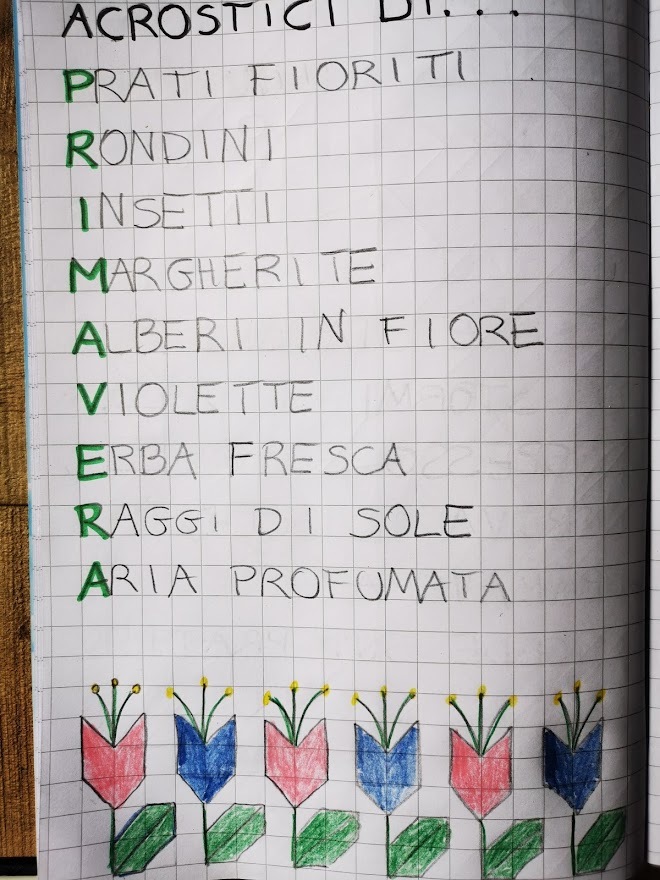 ACROSTICI DI...
PRATI FIORITI
RONDINI
INSETTI
MARGHERITE
ALBERI IN FIORE
VIOLETTE
ERBA FRESCA
RAGGI DI SOLE
ARIA PROFUMATA